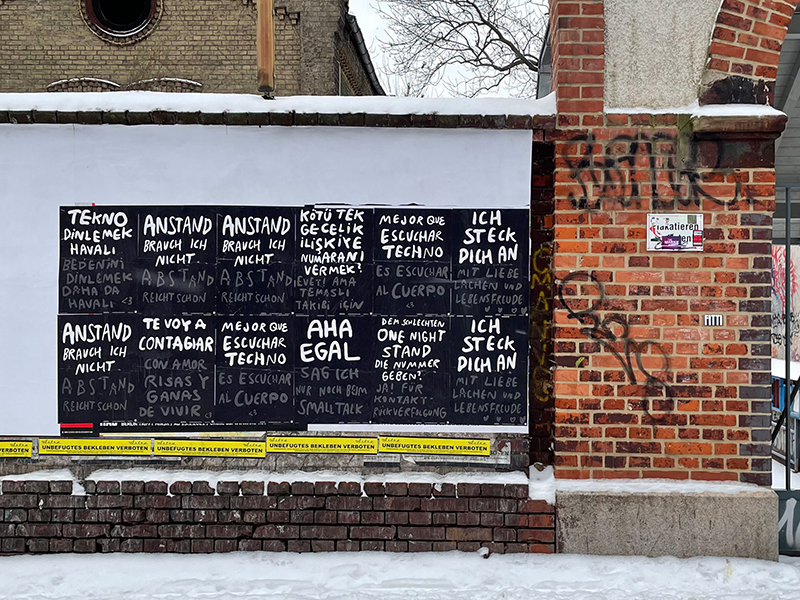 TEKNO
DINLEMEK
HAVALI
BEDENİNİ
DINLEMEK
DAHA DA
HAVALI <3
ANSTAND
BRAUCH ICH
NICHT.
ABSTAND
REICHT SCHON
ANSTAND
BRAUCH ICH
NICHT.
ABSTAND
REICHT SCHON
KÖTÜ TEK
GECELIK
ILIŞKIYE
NUMARANI
VERMEK?
EVET! AMA
TEMASLI
TAKIBI IÇIN
MEJOR QUE
ESCUCHAR
TECHNO
ES ESCUCHAR
AL CUERPO
ICH
STECK
DICH AN
MIT LIEBE
LACHEN UND
LEBENSFREUDE
ANSTAND
BRAUCH ICH
NICHT.
ABSTAND
REICHT SCHON
TE VOY A
CONTAGIAR
CON AMOR
RISAS Y
GANAS
DE VIVIR
MEJOR QUE
ESCUCHAR
TECHNO
ES ESCUCHAR
AL CUERPO
<3
AHA
EGAL
SAG ICH
NUR NOCH BEIM
SMALLTALK
DEM SCHLECHTEN
ONE NIGHT
STAND
DIE NUMMER
GEBEN?
JA! FÜR
KONTAKT-
RÜCKVERFOLGUNG
ICH
STECK
DICH AN
MIT LIEBE
LACHEN UND
LEBENSFREUDE
BEKLEBEN VERBOTEN
UNBEFUGTES BEKLEBEN VERBOTEN
UNBEFUGTES BEKLEBEN VERBOTEN
UNBEFUGTES BEKLEBEN VERBOTEN
UNBEFUGTES BEKLEBEN VERBOTEN